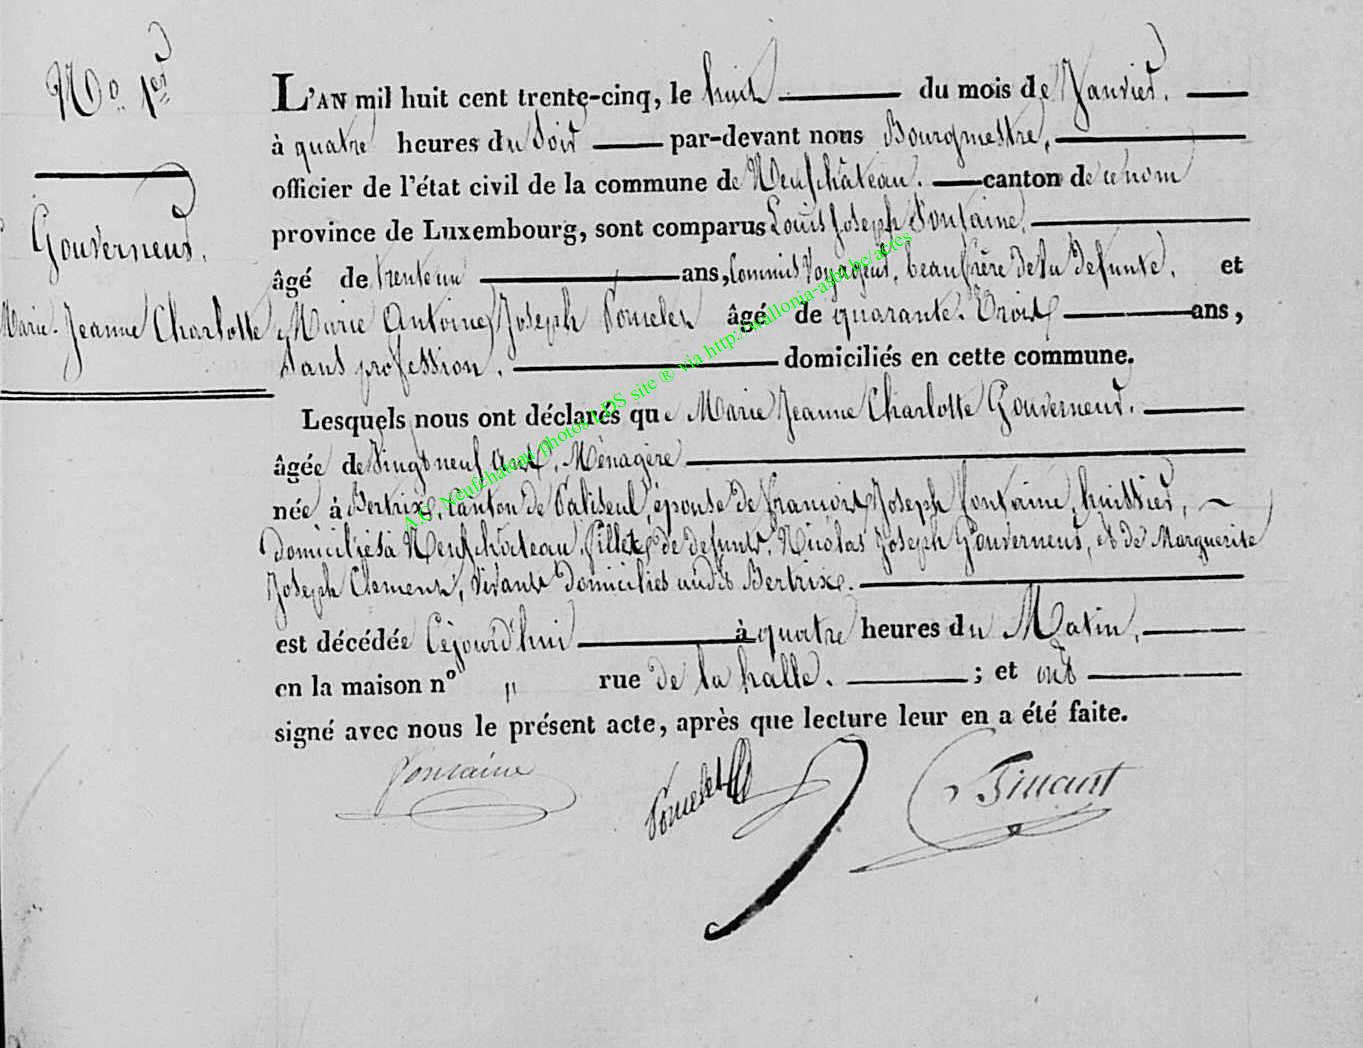 No. 1er
Gouverneur.
Marie-Jeanne Charlotte
L'AN mil huit cent trente-cinq, le huit du mois de Janvier.
à quatre heures du Soir par-devant nous Bourgmestre,
officier de l'état civil de la commune de Neufchâteau. canton de ce nom
province de Luxembourg, sont comparus Louis Joseph Fontaine,
âgé de trente un ans, Commis Voyageur, beaufrère de la defunte, et
Marie Antoine Joseph âgé de quarante-Trois ans,
sans profession, domiciliés en cette commune.
Lesquels nous ont déclarés que Marie Jeanne Charlotte Gouverneur,
âgée de Vingt neuf ans, Ménagère
née à Bertrix, Canton de Paliseul, épouse de François Joseph Fontaine, huissier,
domiciliés à Neufchâteau, fille de defunts, Nicolas Joseph Gouverneur, et de Marguerite
Joseph Clement, vivant domiciliés audit Bertrix.
est décédée Cejourd'hui à quatre heures du Matin,
en la maison n° " rue de la halle. ; et ont
signé avec nous le présent acte, après que lecture leur en a été faite.
Fontaine
A.C. Neufchateau photos LDS site ® via http://wallonia-asbl.be/actes